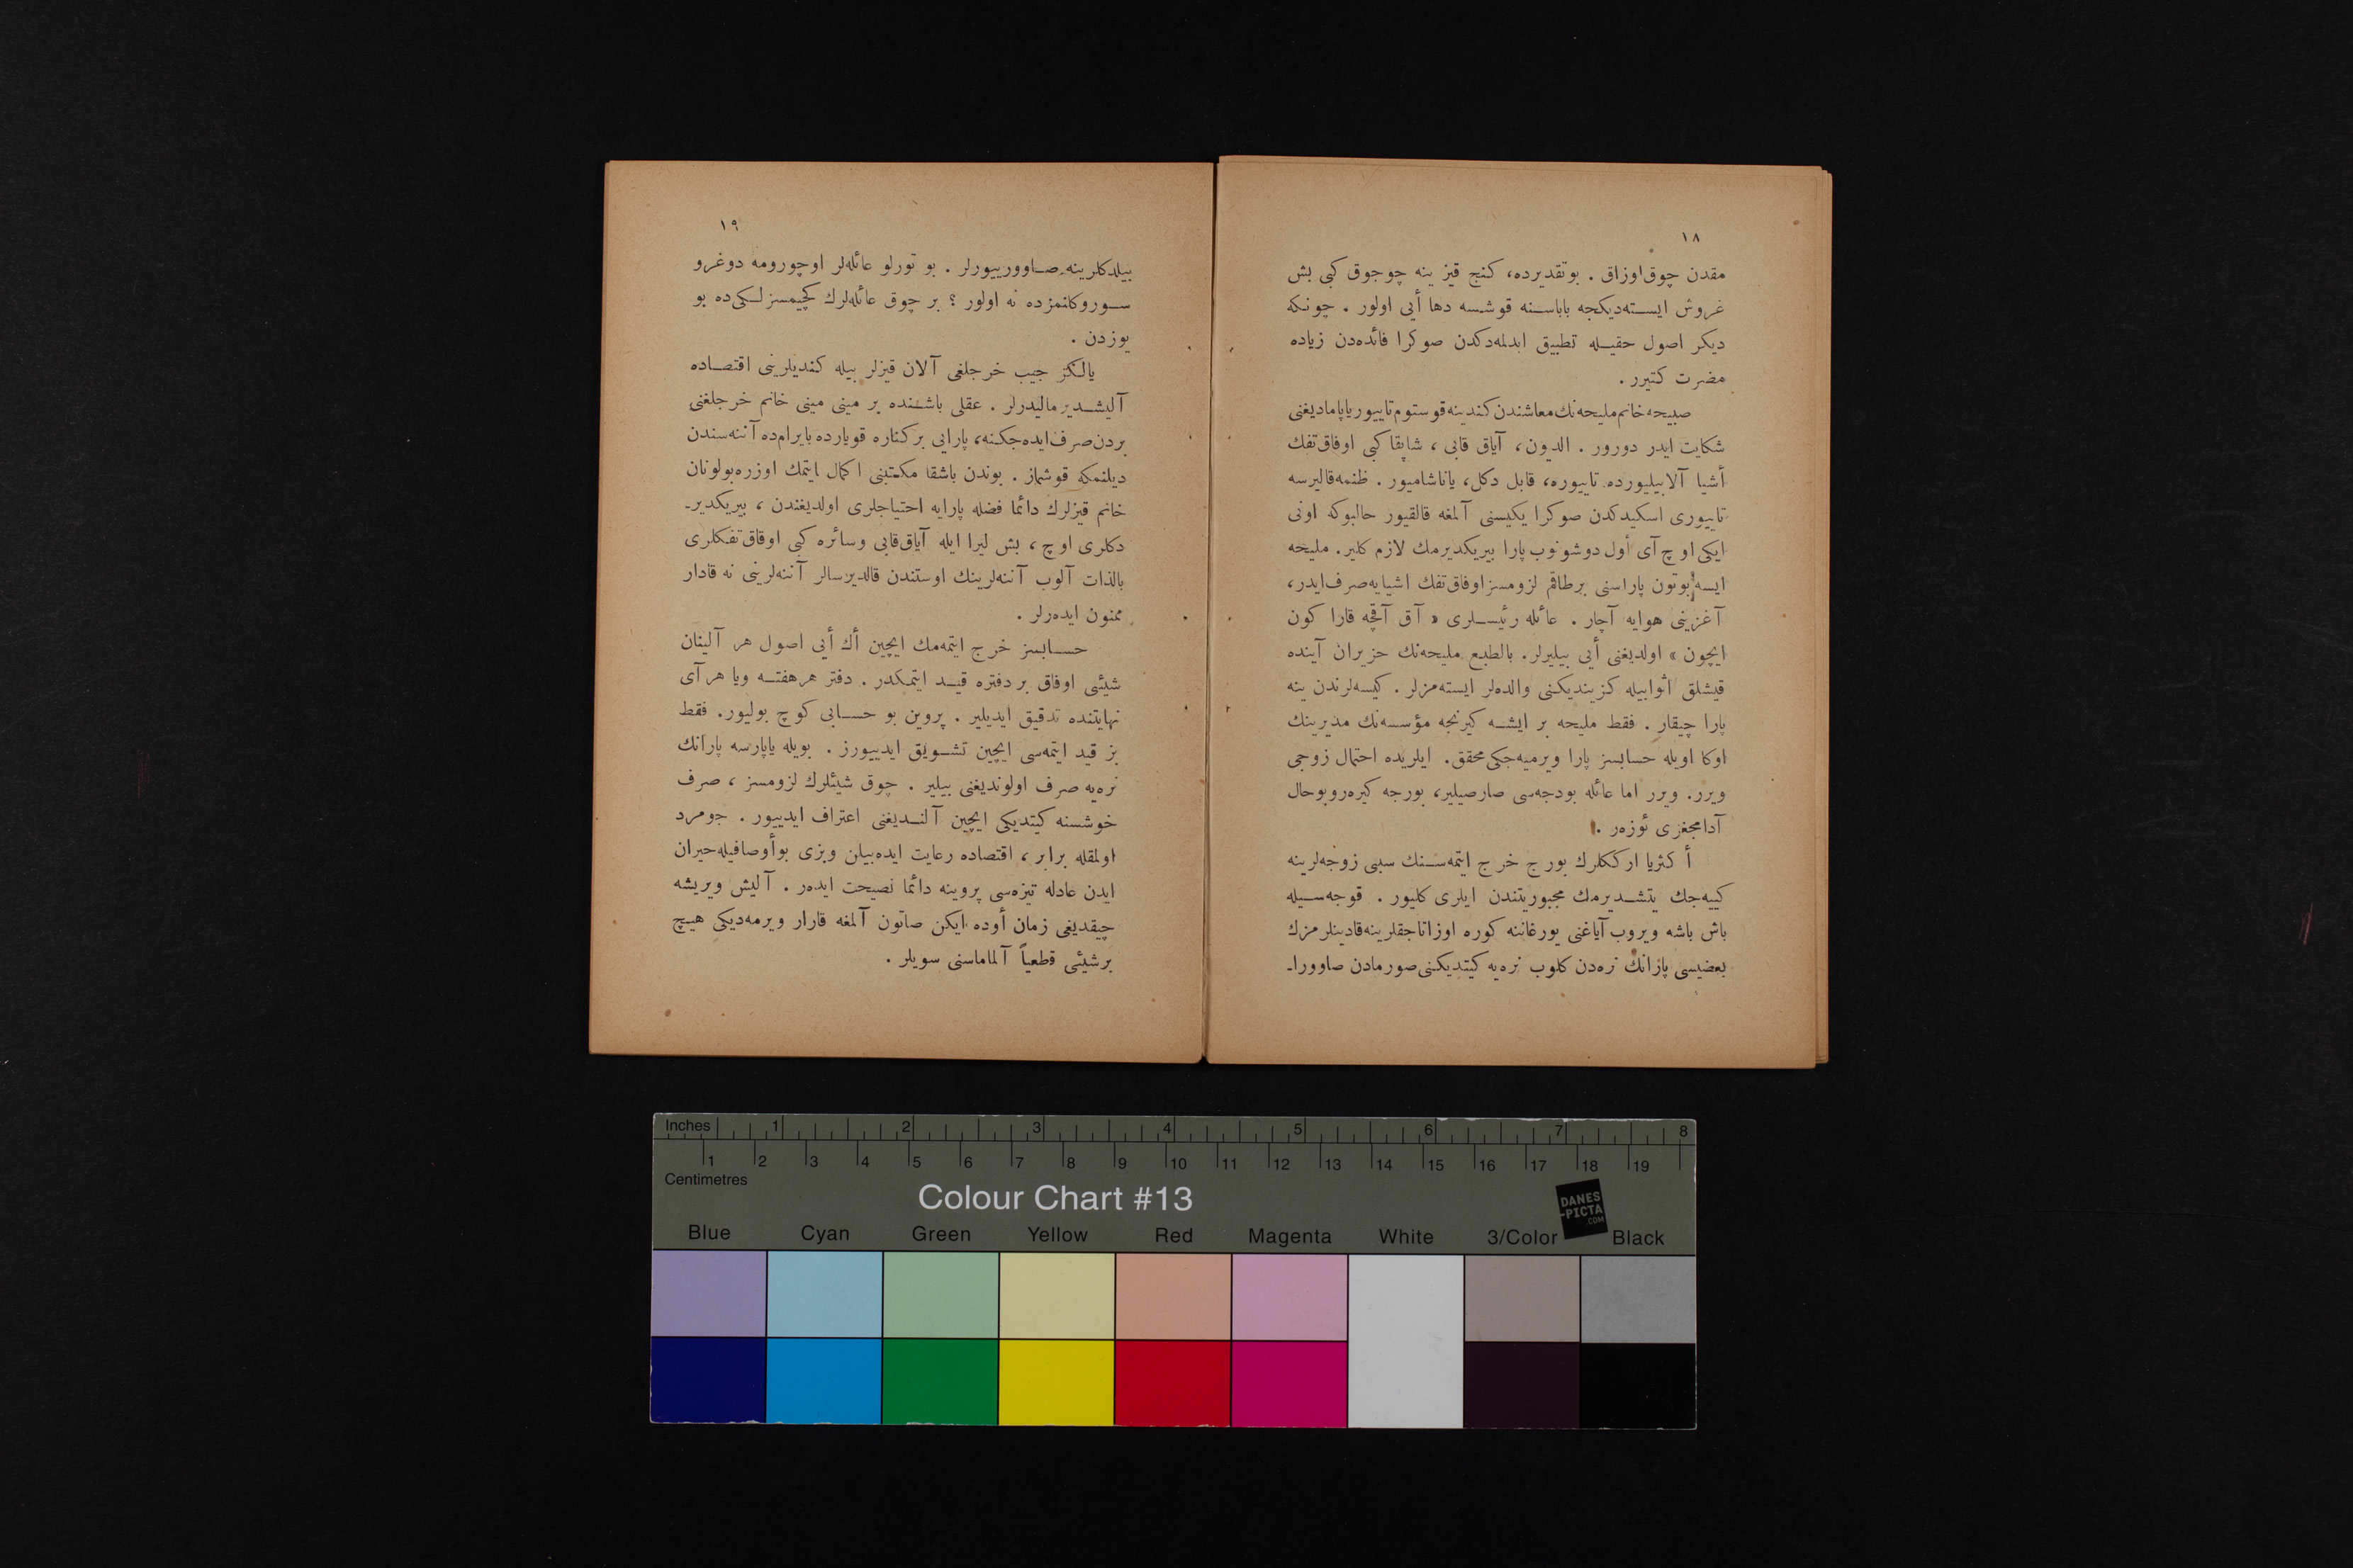 ١٨
مقدن چوق‌اوزاق . بوتقدیرده، کنج قیز ینه چوجوق کبی بش
غروش ایسته‌دیکجه باباسنه قوشسه دها أیی اولور . چونکه
دیکر اصول حقیله تطبیق ایدلمه‌دکدن صوکرا فائده‌دن زیاده
مضرت کتیرر .
صبیحه خانم ملیحه‌نك معاشندن کندینه قوستوم تاییور یاپامادیغنی
شکایت ایدر دورور . الدیون، آیاق قابی ، شاپقا کبی اوفاق تفك
أشیا آلابیلیورده تاییوره، قابل دکل، یاناشامیور . ظنمه‌قالیرسه
تاییوری اسکیدکدن صوکرا یکیسنی آلمغه قالقیور حالبوکه اونی
ایکی اوچ آی أول دوشونوب پارا بیریکدیرمك لازم کلیر. ملیحه
ایسه بوتون پاراسنی برطاقم لزومسز اوفاق تفك اشیایه صرف ایدر،
آغزینی هوایه آچار . عائله رئیسلری « آق آقچه قارا کون
ایچون » اولدیغنی أیی بیلیرلر. بالطبع ملیحه‌نك حزیران آینده
قیشلق اثوابیله کزیندیکنی والده‌لر ایسته‌مزلر . کیسه‌لرندن ینه
پارا چیقار . فقط ملیحه بر ایشه کیرنجه مؤسسه‌نك مدیرینك
اوکا اویله حسابسز پارا ویرمیه‌جکی محقق. ایلریده احتمال زوجی
ویرر. ویرر اما عائله بودجه‌سی صارصیلیر، بورجه کیره‌روبوحال
آدامجغزی ئوزەر .
أکثریا ارککلرك بورج خرج ایتمه‌سنك سببی زوجه‌لرینه
کییه‌جك یتشدیرمك مجبوریتندن ایلری کلیور . قوجه‌سیله
باش باشه ویروب آیاغنی یورغاننه کوره اوزاتاجقلرینه قادینلرمزك
بعضیسی پارانك نره‌دن کلوب نره‌یه کیتدیکنی صورمادن صاوورا-
١٩
بیلدکلرینه صاوورییورلر . بو تورلو عائله‌لر اوچورومه دوغرو
سوروکلنمزده نه اولور ؟ بر چوق عائله‌لرك کچیمسزلکی‌ده بو
یوزدن .
یالکز جیب خرجلغی آلان قیزلر بیله کندیلرینی اقتصاده
آلیشدیرمالیدرلر . عقلی باشنده بر مینی مینی خانم خرجلغنی
بردن صرف ایده‌جکنه، پارایی برکناره قویارده بایرام‌ده آننه‌سندن
دیلنمکه قوشماز . بوندن باشقا مکتبنی اکمال ایتمك اوزره‌بولونان
خانم قیزلرك دائما فضله پارایه احتیاجلری اولدیغندن ، بیریکدیر-
دکلری اوچ ، بش لیرا ایله آیاق‌قابی وسائره کبی اوفاق تفکلری
بالذات آلوب آننه‌لرینك اوستندن قالدیرسالر آننه‌لرینی نه قادار
ممنون ایده‌رلر .
حسابسز خرج ایتمه‌مك ایچین أك أیی اصول هر آلینان
شیئی اوفاق بر دفتره قید ایتمکدر . دفتر هرهفته ویا هر آی
نهایتنده تدقیق ایدیلیر . پروین بو حسابی کوچ بولیور. فقط
بز قید ایتمه‌سی ایچین تشویق ایدییورز . بویله یاپارسه پارانك
نره‌یه صرف اولوندیغنی بیلیر . چوق شیئلرك لزومسز ، صرف
خوشسنه کیتدیکی ایچین آلندیغنی اعتراف ایدییور . جومرد
اولمقله برابر ، اقتصاده رعایت ایده‌بیلن وبزی بوأوصافیله‌حیران
ایدن عادله تیزه‌سی پروینه دائما نصیحت ایدەر . آلیش ویریشه
چیقدیغی زمان أوده ایکن صاتون آلمغه قارار ویرمه‌دیکی هیچ
برشیئی قطعیاً آلماماسنی سویلر .
Inches 1 2 3 4 5 6 7 8
1 2 3 4 5 6 7 8 9 10 11 12 13 14 15 16 17 18 19
Centimetres
Colour Chart #13
DANES
-PICTA
.COM
Blue Cyan Green Yellow Red Magenta White 3/Color Black